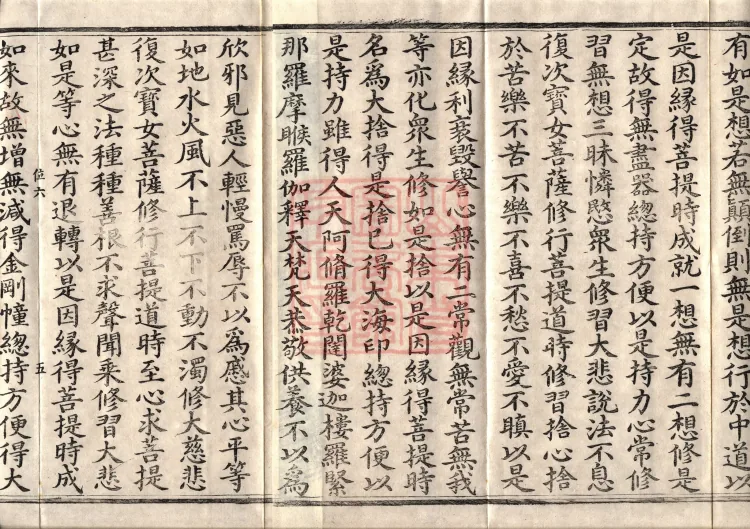 有如是想若無顛倒則無是想行於中道以
是因緣得菩提時成就一想無有二想修是
定故得無盡器總持方便以是持力心常修
習無想三昧憐愍衆生修習大悲說法不息
復次寶女菩薩修行菩提道時修習捨心捨
於苦樂不苦不樂不喜不愁不愛不瞋以是
因緣利衰毀譽心無有二常觀無常苦無我
等亦化衆生修如是捨以是因緣得菩提時
名爲大捨得是捨已得大海印總持方便以
是持力雖得人天阿脩羅乾闥婆迦樓羅緊
那羅摩睺羅伽釋天梵天恭敬供養不以爲
欣邪見惡人輕慢罵辱不以爲慼其心平等
如地水火風不上不下不動不濁修大慈悲
復次寶女菩薩修行菩提道時至心求菩提
甚深之法種種善根不求聲聞乘修習大悲
如是等心無有退轉以是因緣得菩提時成
位六 五
如來故無增無減得金剛幢總持方便得大